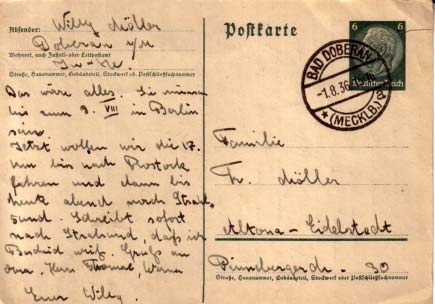 Absender: Willy Möller
Doberan i/M
Wohnort, auch Zustell- oder Leitpostamt
Straße, Hausnummer, Gebäudeteil, Stockwerk od. Postschließfachnummer
Das wäre alles. Sie müssen
bis zum 9. VIII in Berlin
sein.
Jetzt wollen wir die 17.
km bis nach Rostock
fahren und dann bis
heute abend nach Stral-
sund. Schreibt sofort
nach Stralsund, daß ich
Bescheid weiß. Grüße an
Oma, Herr Thomas, Werner
Euer Willy.
Postkarte
6 6
Deutsches Reich
BAD DOBERAN
-1.8.36
(MECKLB.)
Familie
Th. Möller
Altona-Eidelstedt
Pinnebergerch. 80
Straße, Hausnummer, Gebäudeteil, Stockwerk oder Postschließfachnummer